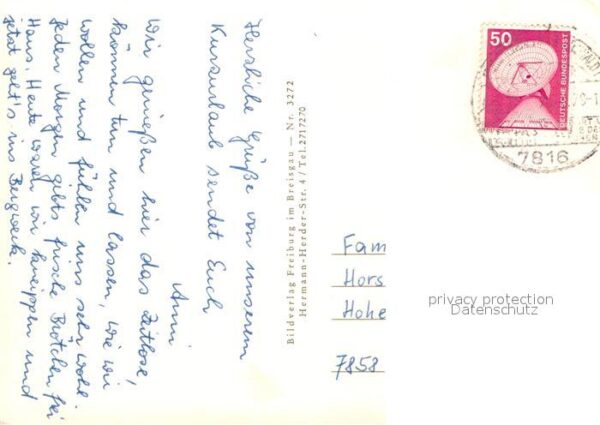 Herzliche Grüße von unserem
Kururlaub sendet Euch
Anni
Wir genießen hier das Zeitlose,
können tun und lassen, wie wir
wollen und fühlen uns sehr wohl.
Jeden Morgen gibts frische Brötchen frei
Haus. Heute waren wir kneippen und
jetzt geht's ins Bergwerk.
Bildverlag Freiburg im Breisgau — Nr. 3272
Hermann-Herder-Str. 4 / Tel. 2717270
50
DEUTSCHE BUNDESPOST
7816
Fam
Hors
Hohe
7858
privacy protection
Datenschutz